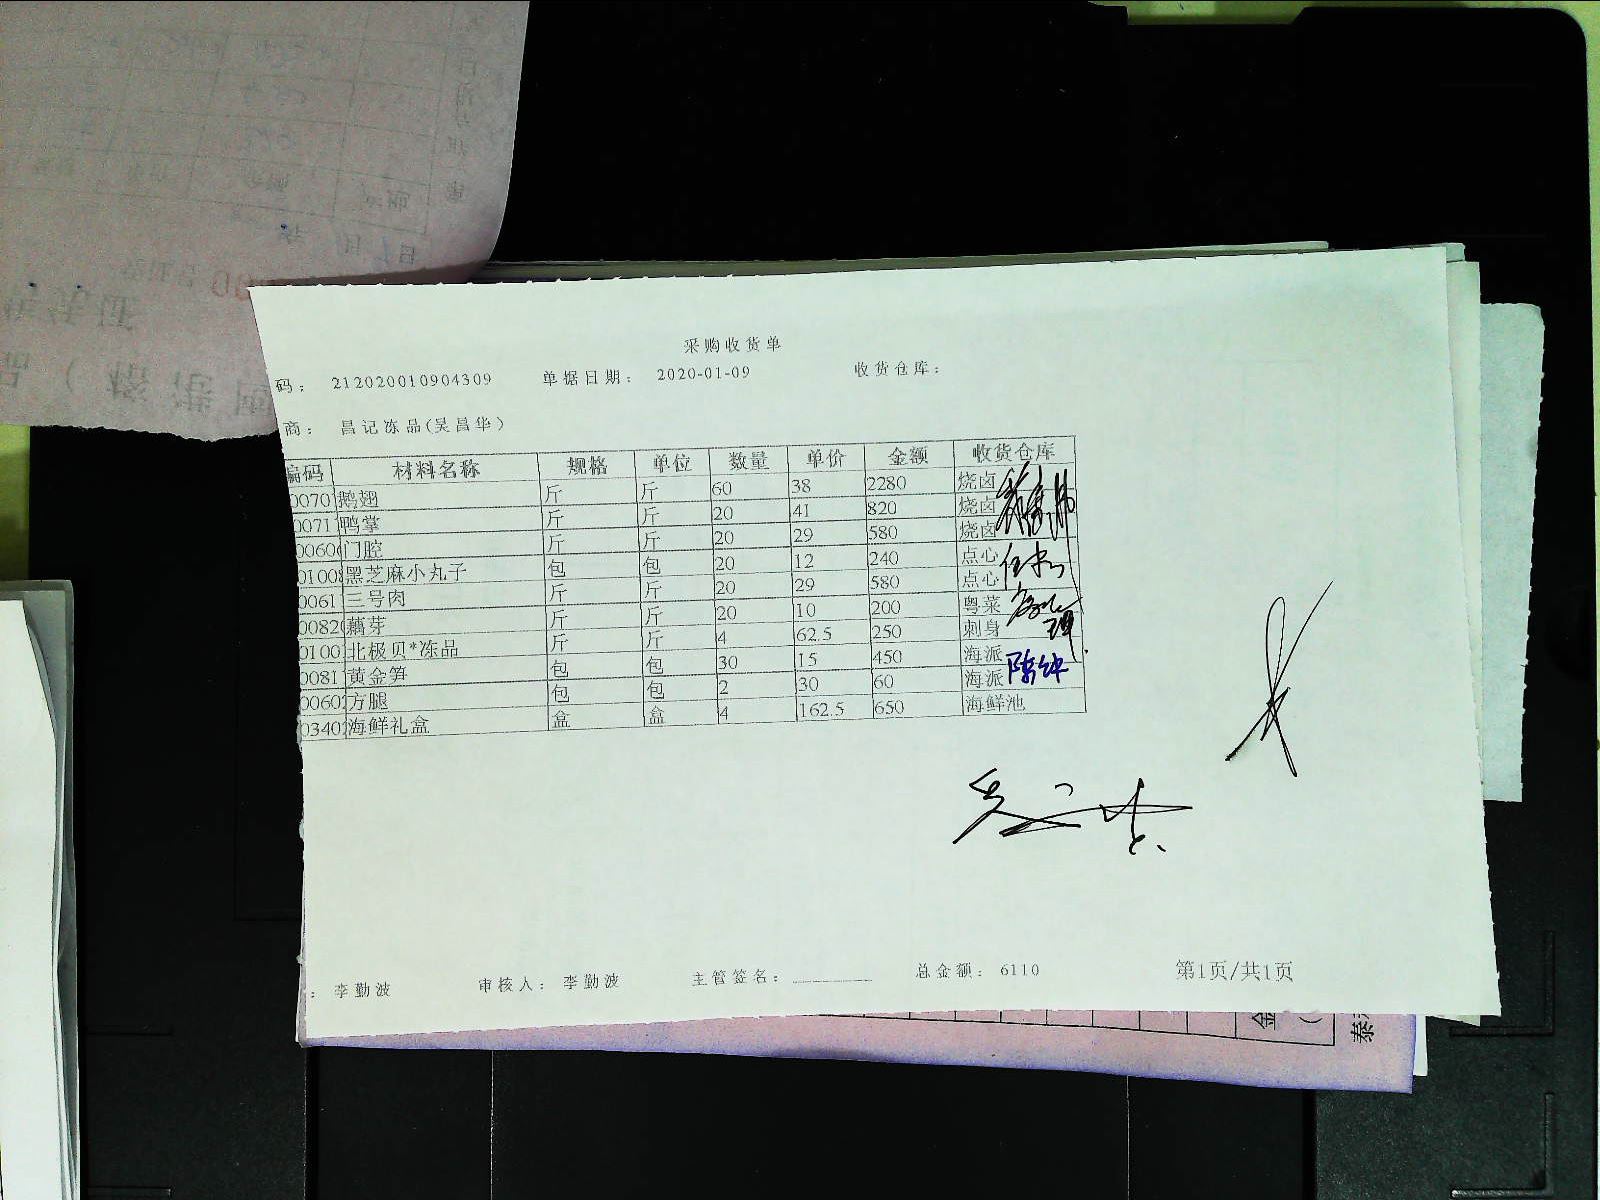 采购收货单
码： 212020010904309 单据日期： 2020-01-09 收货仓库：
商： 昌记冻品(吴昌华)
编码 材料名称 规格 单位 数量 单价 金额 收货仓库
0070 鹅翅 斤 斤 60 38 2280 烧卤
0071 鸭掌 斤 斤 20 41 820 烧卤
0060 门腔 斤 斤 20 29 580 烧卤
0100 黑芝麻小丸子 包 包 20 12 240 点心
0061 三号肉 斤 斤 20 29 580 点心
0082 藕芽 斤 斤 20 10 200 粤菜
0100 北极贝*冻品 斤 斤 4 62.5 250 刺身
0081 黄金笋 包 包 30 15 450 海派
0060 方腿 包 包 2 30 60 海派
0340 海鲜礼盒 盒 盒 4 162.5 650 海鲜池
： 李勤波 审核人： 李勤波 主管签名： 总金额： 6110 第1页/共1页